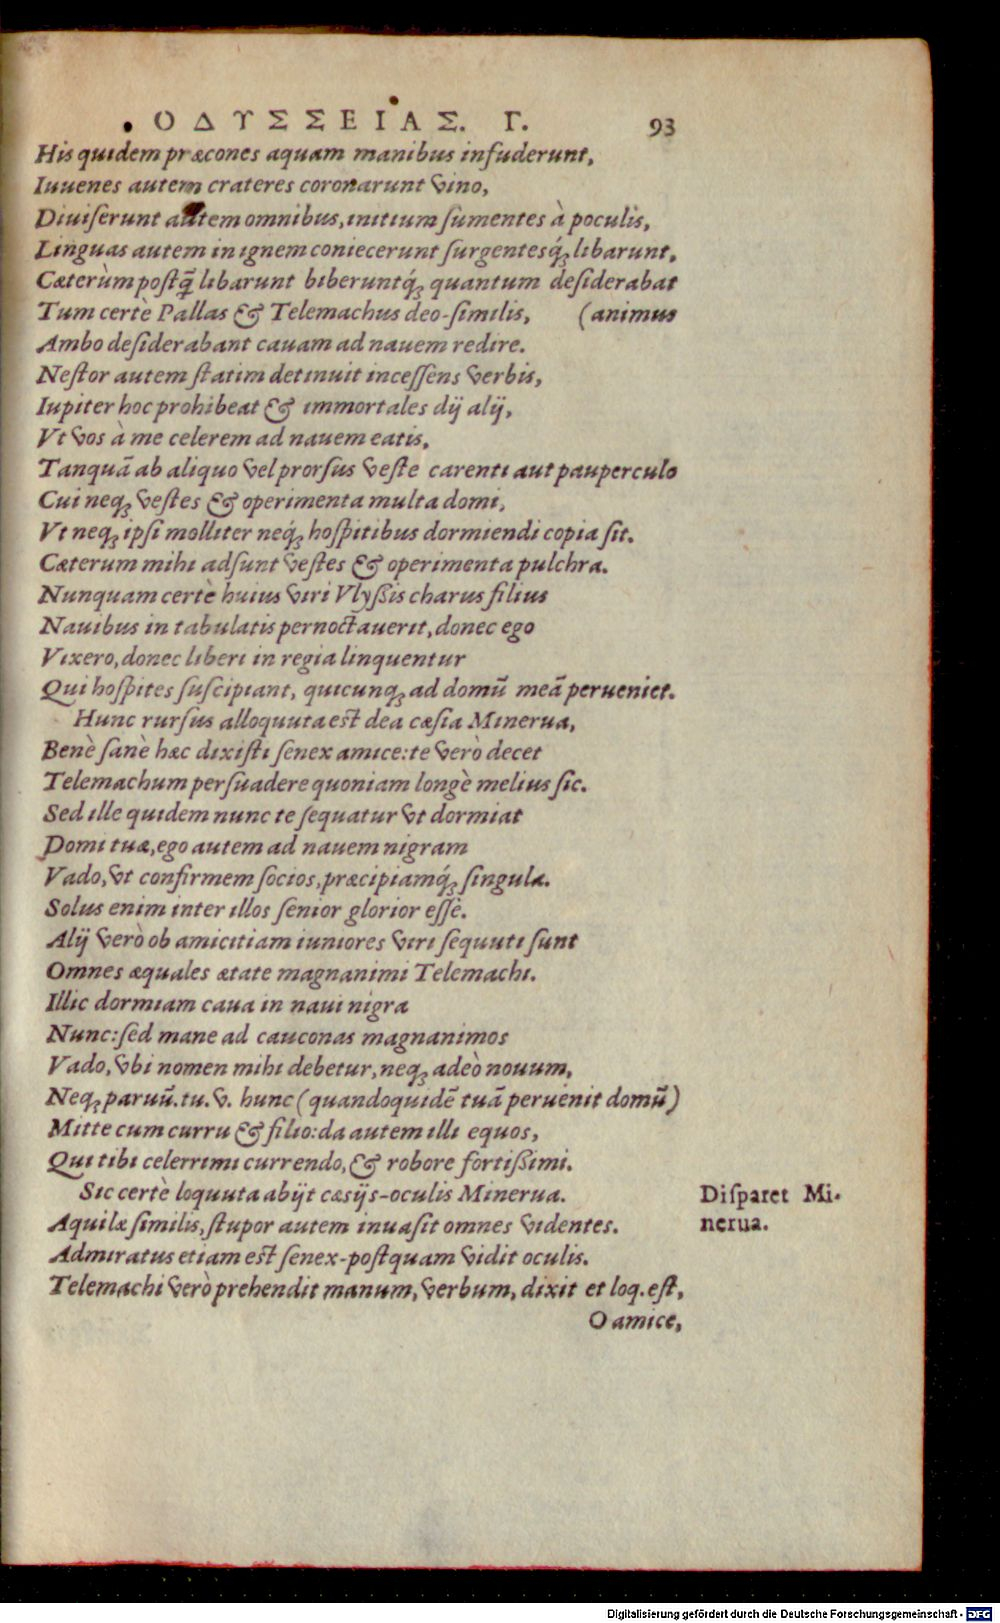 ΟΔΥΣΣΕΙΑΣ. Γ. 93
His quidem præcones aquam manibus infuderunt,
Iuuenes autem crateres coronarunt vino,
Diuiserunt autem omnibus, initium sumentes à poculis,
Linguas autem in ignem coniecerunt surgentesq́ꝫ libarunt.
Cæterùm postq̃ libarunt biberuntq́ꝫ quantum desiderabat
Tum certè Pallas & Telemachus deo-similis, (animus
Ambo desiderabant cauam ad nauem redire.
Nestor autem statim detinuit incessens verbis,
Iupiter hoc prohibeat & immortales dij alij,
Vt vos à me celerem ad nauem eatis,
Tanquã ab aliquo vel prorsus veste carenti aut pauperculo
Cui neqꝫ vestes & operimenta multa domi,
Vt neqꝫ ipsi molliter neq́ꝫ hospitibus dormiendi copia sit.
Cæterum mihi adsunt vestes & operimenta pulchra.
Nunquam certè huius viri Vlyßis charus filius
Nauibus in tabulatis pernoctauerit, donec ego
Vixero, donec liberi in regia linquentur
Qui hospites suscipiant, quicunqꝫ ad domũ meã perueniet.
Hunc rursus alloquuta est dea cæsia Minerua,
Benè sanè hæc dixisti senex amice: te verò decet
Telemachum persuadere quoniam longè melius sic.
Sed ille quidem nunc te sequatur vt dormiat
Domi tuæ, ego autem ad nauem nigram
Vado, vt confirmem socios, præcipiamq́ꝫ singula.
Solus enim inter illos senior glorior esse.
Alij verò ob amicitiam iuniores viri sequuti sunt
Omnes æquales ætate magnanimi Telemachi.
Illic dormiam caua in naui nigra
Nunc: sed mane ad cauconas magnanimos
Vado, vbi nomen mihi debetur, neqꝫ adeò nouum,
Neqꝫ paruũ. tu. v. hunc (quandoquidẽ tuã peruenit domũ)
Mitte cum curru & filio: da autem illi equos,
Qui tibi celerrimi currendo, & robore fortißimi.
Sic certè loquuta abijt cæsijs-oculis Minerua.
Aquilæ similis, stupor autem inuasit omnes videntes.
Admiratus etiam est senex-postquam vidit oculis.
Telemachi verò prehendit manum, verbum, dixit et loq. est,
O amice,
Disparet Mi-
nerua.
Digitalisierung gefördert durch die Deutsche Forschungsgemeinschaft - DFG